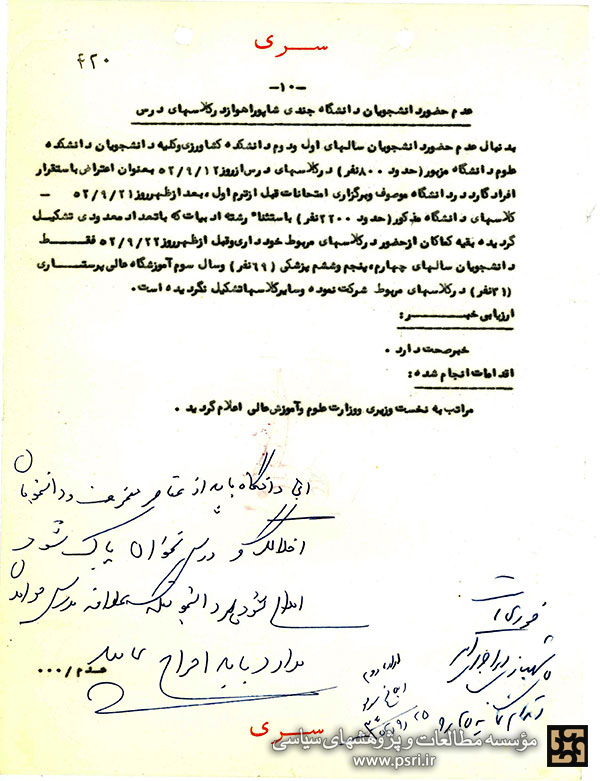 سری
۴۲۰
-۱۰-
عدم حضور دانشجویان دانشگاه جندی شاپور اهواز در کلاسهای درس
بدنبال عدم حضور دانشجویان سالهای اول و دوم دانشکده کشاورزی و کلیه دانشجویان دانشکده
علوم دانشگاه مزبور (حدود ۸۰۰ نفر) در کلاسهای درس از روز ۵۲/۹/۱۲ بعنوان اعتراض باستقرار
افراد گارد در دانشگاه موصوف و برگزاری امتحانات قبل از ترم اول، بعد از ظهر روز ۵۲/۹/۲۱ -
کلاسهای دانشگاه مذکور (حدود ۲۲۰۰ نفر) باستثناء رشته ادبیات که با تعداد معدودی تشکیل
گردیده بقیه کماکان از حضور در کلاسهای مربوط خودداری و قبل از ظهر روز ۵۲/۹/۲۲ فقط
دانشجویان سالهای چهارم، پنجم و ششم پزشکی (۶۹ نفر) و سال سوم آموزشگاه عالی پرستاری
(۳۱ نفر) در کلاسهای مربوط شرکت نموده و سایر کلاسها تشکیل نگردیده است.
ارزیابی خبر:
خبر صحت دارد.
اقدامات انجام شده:
مراتب به نخست وزیری و وزارت علوم و آموزش عالی اعلام گردید.
این دانشگاه باید از عناصر منحرف و دانشجویان
اخلالگر و درس نخوان پاک شود
دانشجوئیکه درس خواندن
ندارد باید اخراج
فوری است
سری
مؤسسه مطالعات و پژوهشهای سیاسی
www.psri.ir